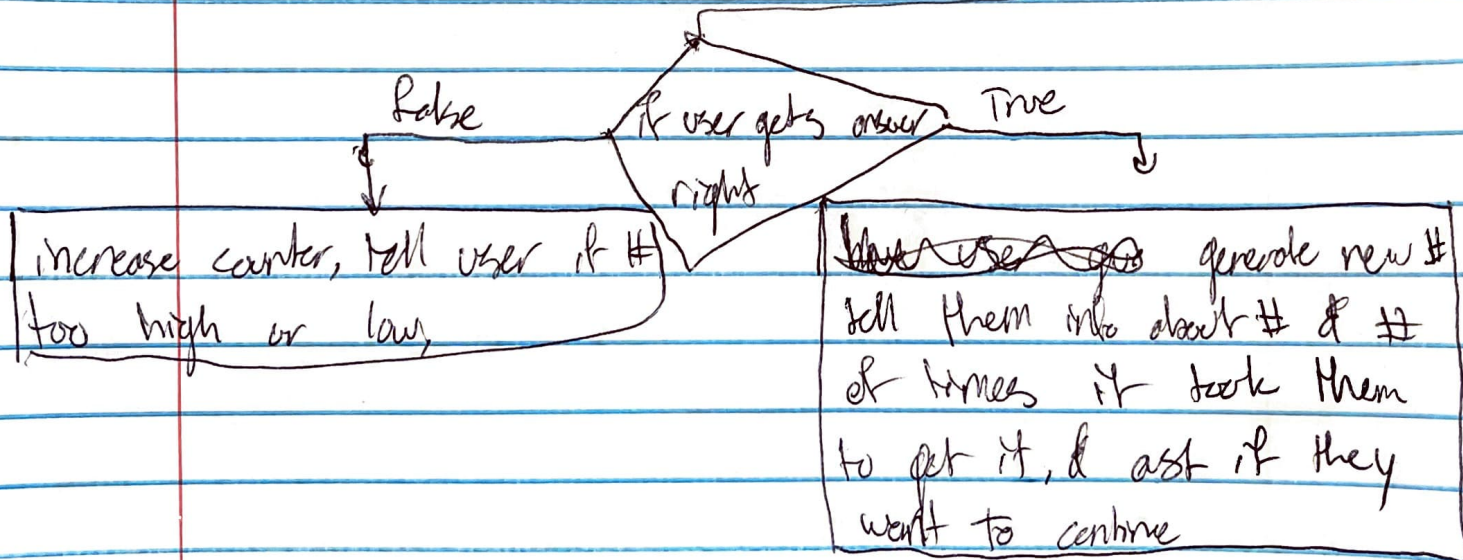 False
if user gets answer
True
right
increase counter, tell user if #
too high or low,
generate new #
tell them info about # & #
of times it took them
to get it, & ask if they
want to continue